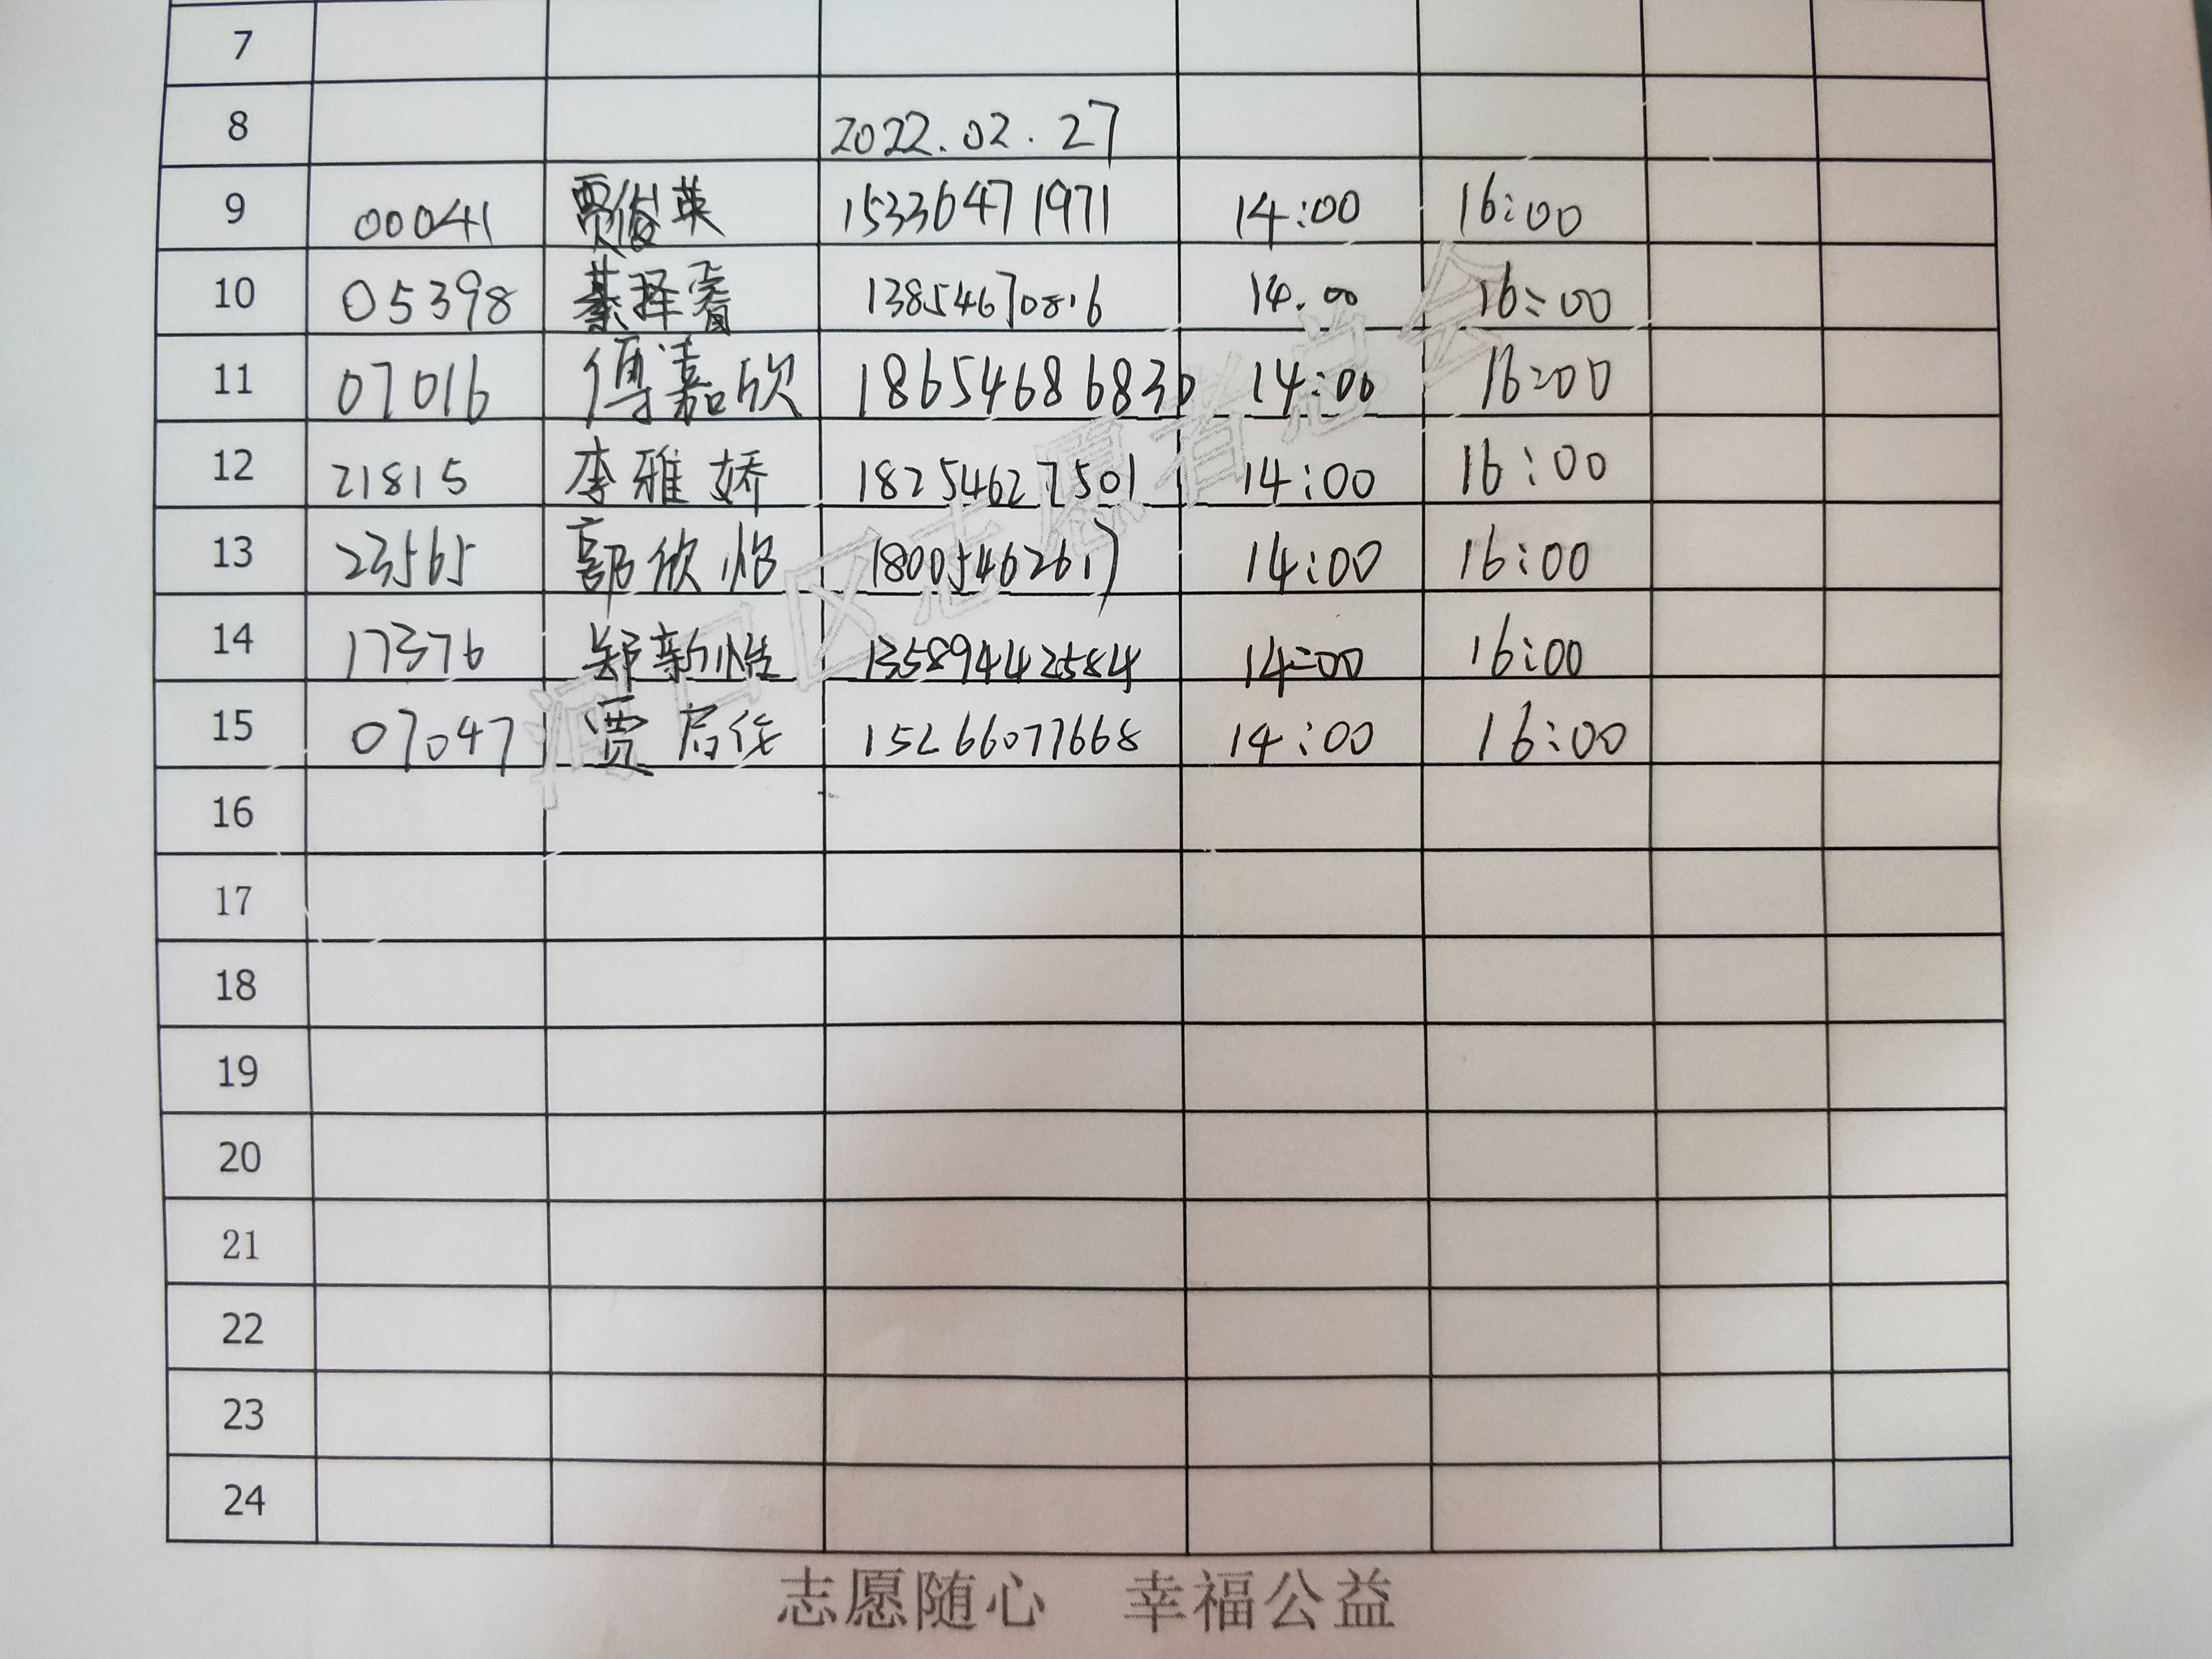 7
8 2022.02.27
9 00041 贾俊英 15336471971 14:00 16:00
10 05398 綦择睿 13854670816 14:00 16:00
11 07016 傅嘉欣 18654686830 14:00 16:00
12 21815 李雅娇 18254627501 14:00 16:00
13 23565 郭欣怡 18005462617 14:00 16:00
14 17376 郑新怡 13589442584 14:00 16:00
15 07047 贾 15266077668 14:00 16:00
16
17
18
19
20
21
22
23
24
河口区志愿者总会
志愿随心 幸福公益